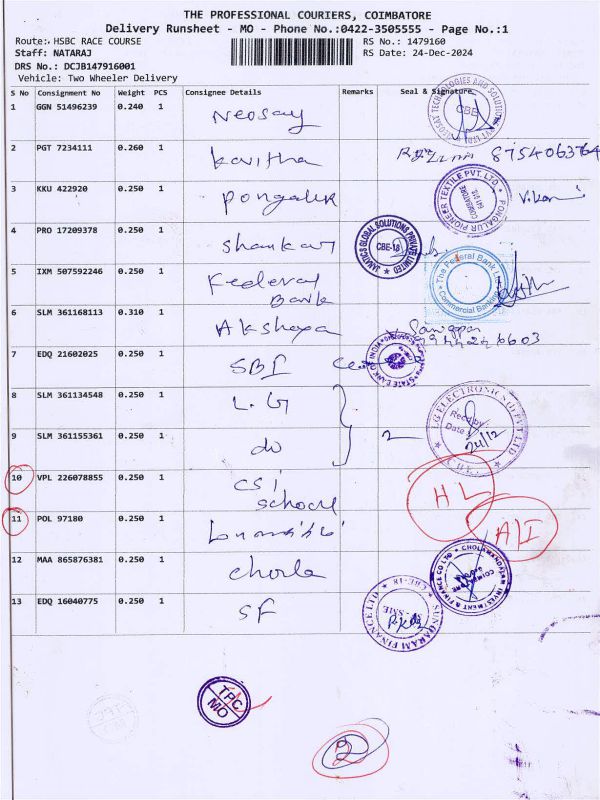 THE PROFESSIONAL COURIERS, COIMBATORE
Delivery Runsheet - MO - Phone No.:0422-3505555 - Page No.:1
Route: HSBC RACE COURSE RS No.: 1479160
Staff: NATARAJ RS Date: 24-Dec-2024
DRS No.: DCJB147916001
Vehicle: Two Wheeler Delivery
S No Consignment No Weight PCS Consignee Details Remarks Seal & Signature
1 GGN 51496239 0.240 1 Neosay CBE
2 PGT 7234111 0.260 1 Kavitha
3 KKU 422920 0.250 1 Pongalur PONGALUR PIONEER TEXTILE PVT. LTD. COIMBATORE
4 PRO 17209378 0.250 1 Shankar JAMATICS GLOBAL SOLUTIONS PRIVATE LIMITED CBE-18
5 IXM 507592246 0.250 1 Federal
Bank The Federal Bank Ltd Commercial Banking
6 SLM 361168113 0.310 1 Akshaya
7 EDQ 21602025 0.250 1 SBI STATE BANK OF INDIA
8 SLM 361134548 0.250 1 L.G LG ELECTRONICS (I) PVT LTD
Recd by
Date
24/12
9 SLM 361155361 0.250 1 do 2
10 VPL 226078855 0.250 1 CSI
School HL
11 POL 97180 0.250 1 A/I
12 MAA 865876381 0.250 1 Chola CHOLAMANDALAM INVESTMENT & FINANCE CO LTD COIMBATORE
13 EDQ 16040775 0.250 1 SF SUNDARAM FINANCE LTD CBE-18
TPC
MO
2